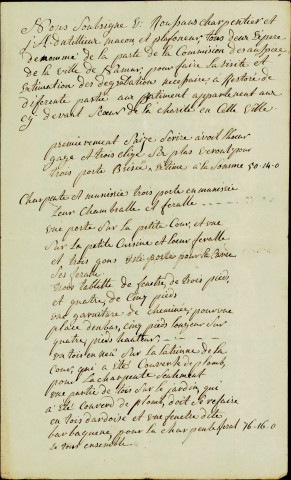 Nous Soubsigné G: Noussans charpentier et
J: A: intilleux macon et plafoneur, tous deux Expers
denommé de la parte de la Commision devauspace
de la ville de Namur, pour faire la visite et
Estimation des degradations necessaire a Restorer de
diferente partie au Batiment appartenant aux
cy devant Sœurs de la charité en Cette ville.
premierement Saize Serrure avec
et trois Clef Six plus verroul pour
trois porte Brisée, Estime à la Somme 50-14-0
Charpente et menuisrie trois porte en menuisrie
Leur Chambralle et feralle
une porte Sur la petite Cour, et une
Sur la petite Cuisine et Leur feralle
et trois gons porte pour la Cave
Ses feralle
trois tablette de fenetre, de trois pied,
et quatre, de Cinq pieds
une garniture de Cheminée, pour une
place den bas, Cinq pieds Longeur Sur
quatre, pieds hauteur,
un toit en neuf Sur la latrinne de la
Cour, qui a eté Couverte de plomb,
pour La charpente Seulement
une partie de toit Sur le jardin, qui
a eté Couverd de plomb, doit Se refaire
en toit dardoise et une fenetre dite
barbaquenne, pour la charpente feral 76-16-0
le tout ensemble